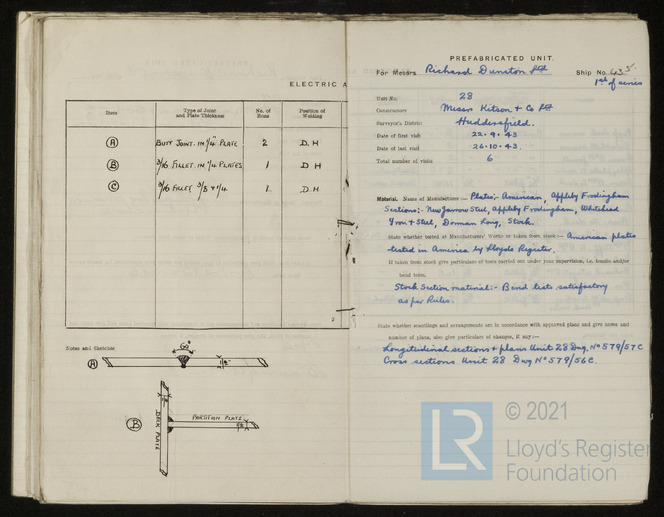 ELECTRIC A
Item
Type of Joint and Plate Thickness
No. of Runs
Position of Welding
A BUTT JOINT. IN 1/4" PLATE 2 D.H
B 3/16 FILLET IN 1/4 PLATES 1 D H
C 3/16 FILLET 3/8 + 1/4 1 D.H
Notes and Sketches
60°
A
B
DECK PLATE
PARTITION PLATE
PREFABRICATED UNIT.
For Messrs. Richard Dunston Ltd Ship No. 435
1st of series
Unit No. 28
Constructors Messrs Kitson & Co Ltd
Surveyor's District Huddersfield.
Date of first visit 22.9.43
Date of last visit 26.10.43.
Total number of visits 6
Material. Name of Manufacturer:— Plates:- American, Appleby Frodingham
Sections:- New Jarrow Steel, Appleby Frodingham, Whitehead
Iron & Steel, Dorman Long, Stock.
State whether tested at Manufacturers' Works or taken from stock:— American plates
tested in America by Lloyds Register.
If taken from stock give particulars of tests carried out under your supervision, i.e. tensile and/or
bend tests.
Stock Section material:- Bend tests satisfactory
as per Rules.
State whether scantlings and arrangements are in accordance with approved plans and give names and
number of plans, also give particulars of changes, if any:—
Longitudinal sections & plans Unit 28 Dwg. No 579/57C
Cross sections Unit 28 Dwg No 579/56C.
LR
© 2021
Lloyd's Register
Foundation